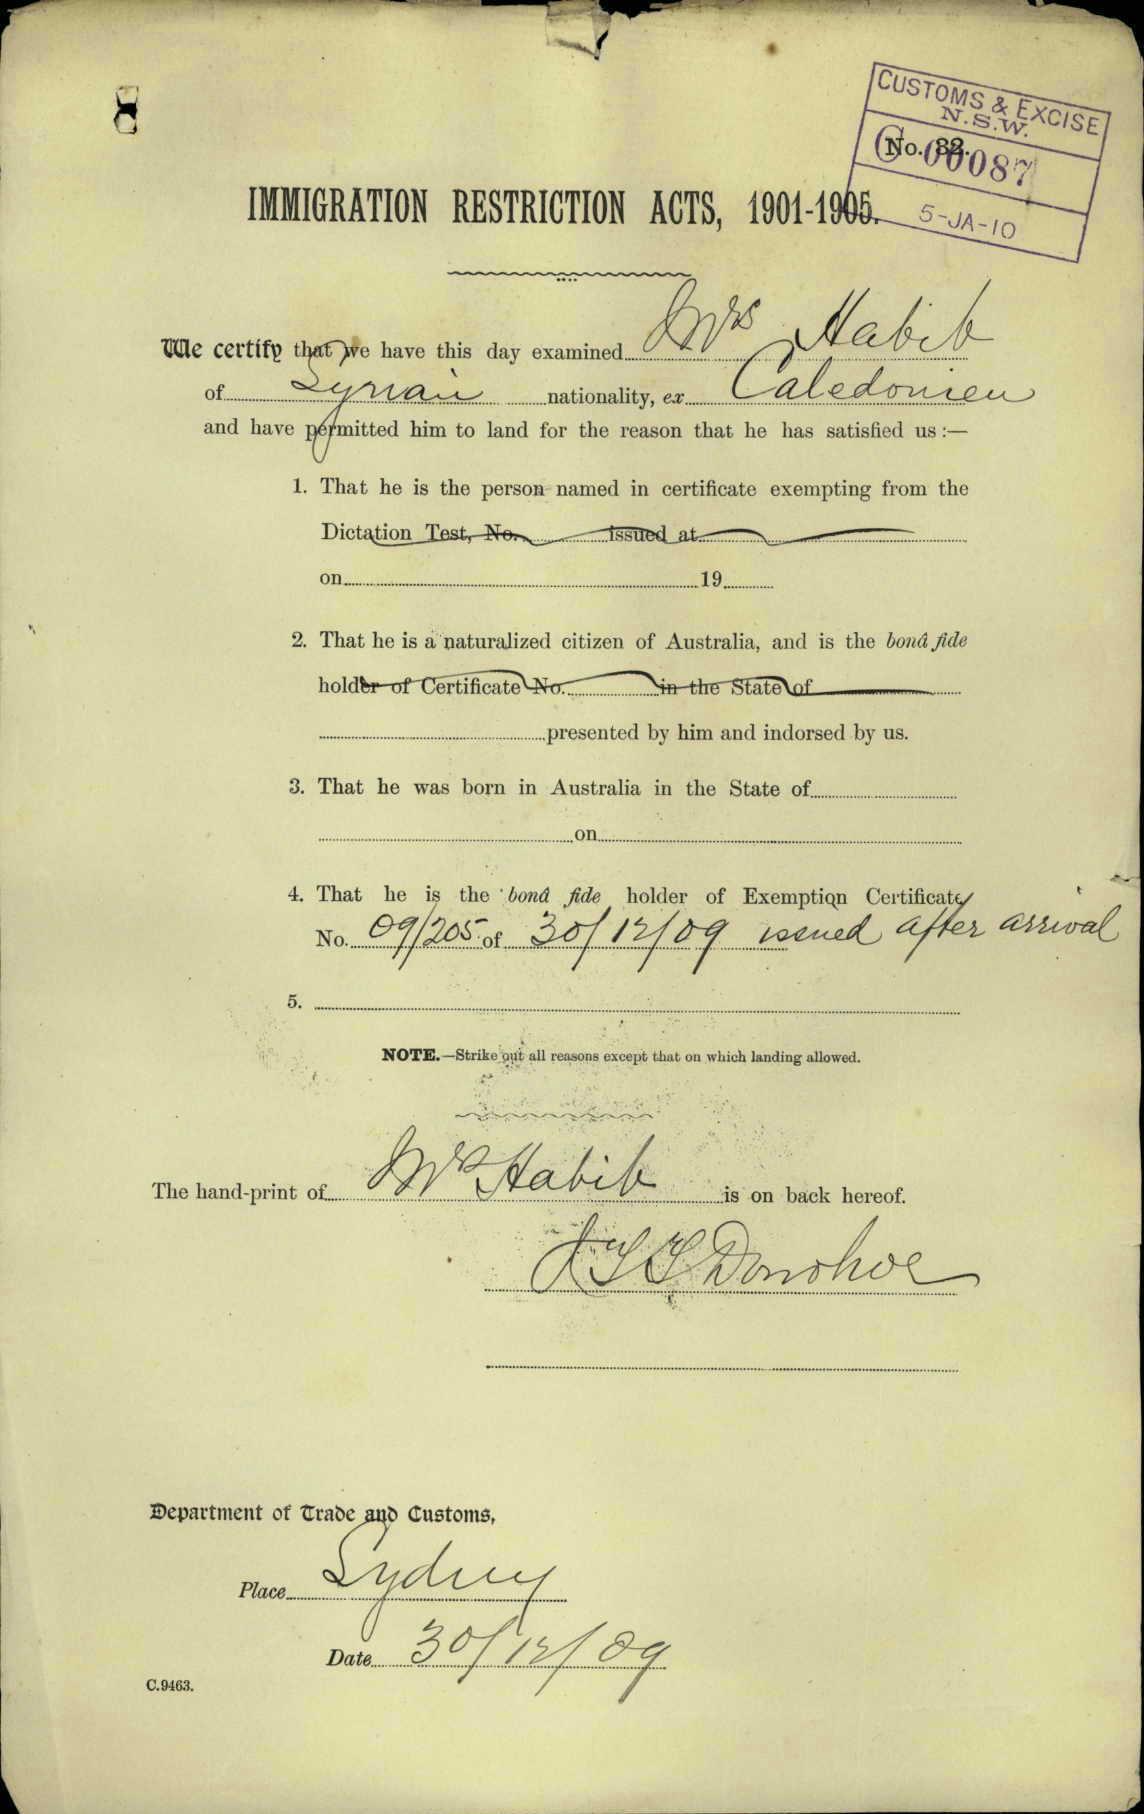 CUSTOMS & EXCISE
N.S.W.
No. 33.
C 00087
5-JA-10
IMMIGRATION RESTRICTION ACTS, 1901-1905.
We certify that we have this day examined Mrs Habib
of Syrian nationality, ex Caledonien
and have permitted him to land for the reason that he has satisfied us :—
1. That he is the person named in certificate exempting from the
Dictation Test, No. issued at
on 19
2. That he is a naturalized citizen of Australia, and is the bonâ fide
holder of Certificate No. in the State of
presented by him and indorsed by us.
3. That he was born in Australia in the State of
on
4. That he is the bonâ fide holder of Exemption Certificate
No. 09/205 of 30/12/09 issued after arrival
5.
NOTE.—Strike out all reasons except that on which landing allowed.
The hand-print of Mrs Habib is on back hereof.
Donohoe
Department of Trade and Customs,
Place Sydney
Date 30/12/09
C.9463.